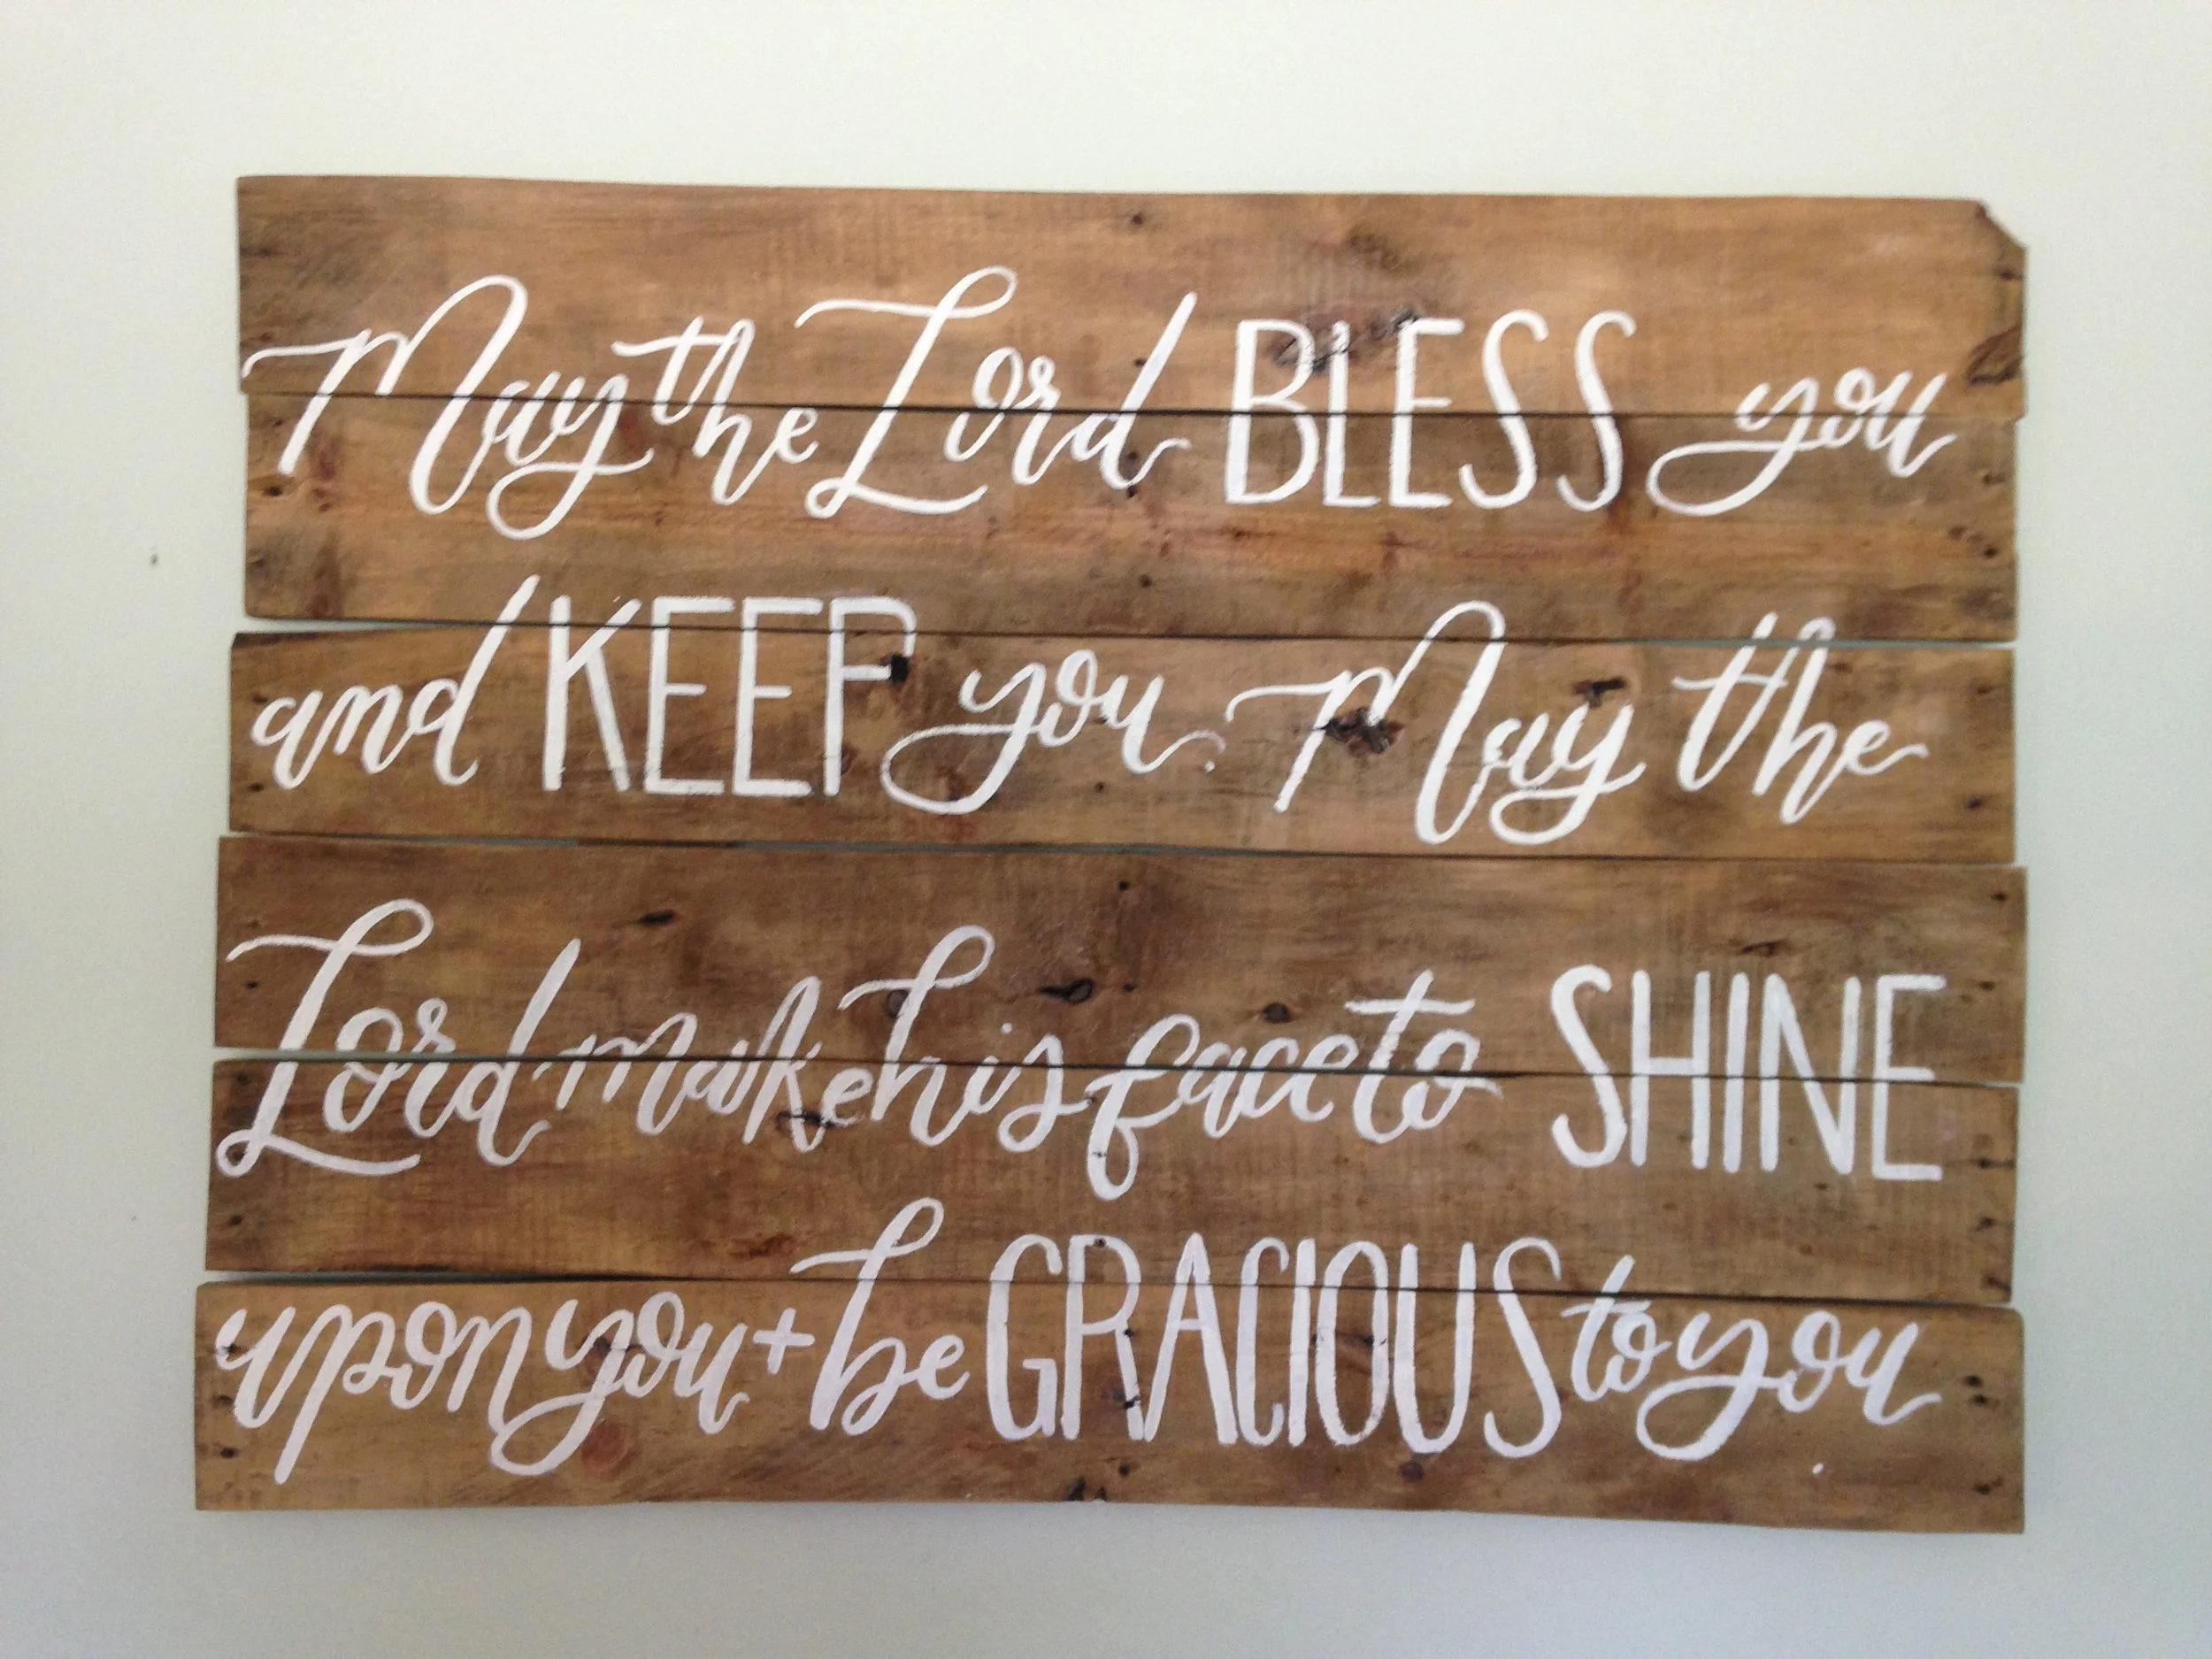 May the Lord BLESS you
and KEEP you. May the
Lord make his face to SHINE
upon you + be GRACIOUS to you